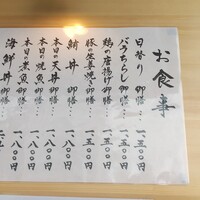 お食事
日替り御膳…一、三〇〇円
バラちらし御膳…一、五〇〇円
鶏の唐揚げ御膳…一、五〇〇円
豚の生姜焼御膳…一、五〇〇円
鮪丼御膳…一、八〇〇円
本日の天丼御膳…一、八〇〇円
本日の焼魚御膳…一、八〇〇円
本日の煮魚御膳…一、八〇〇円
海鮮丼御膳…